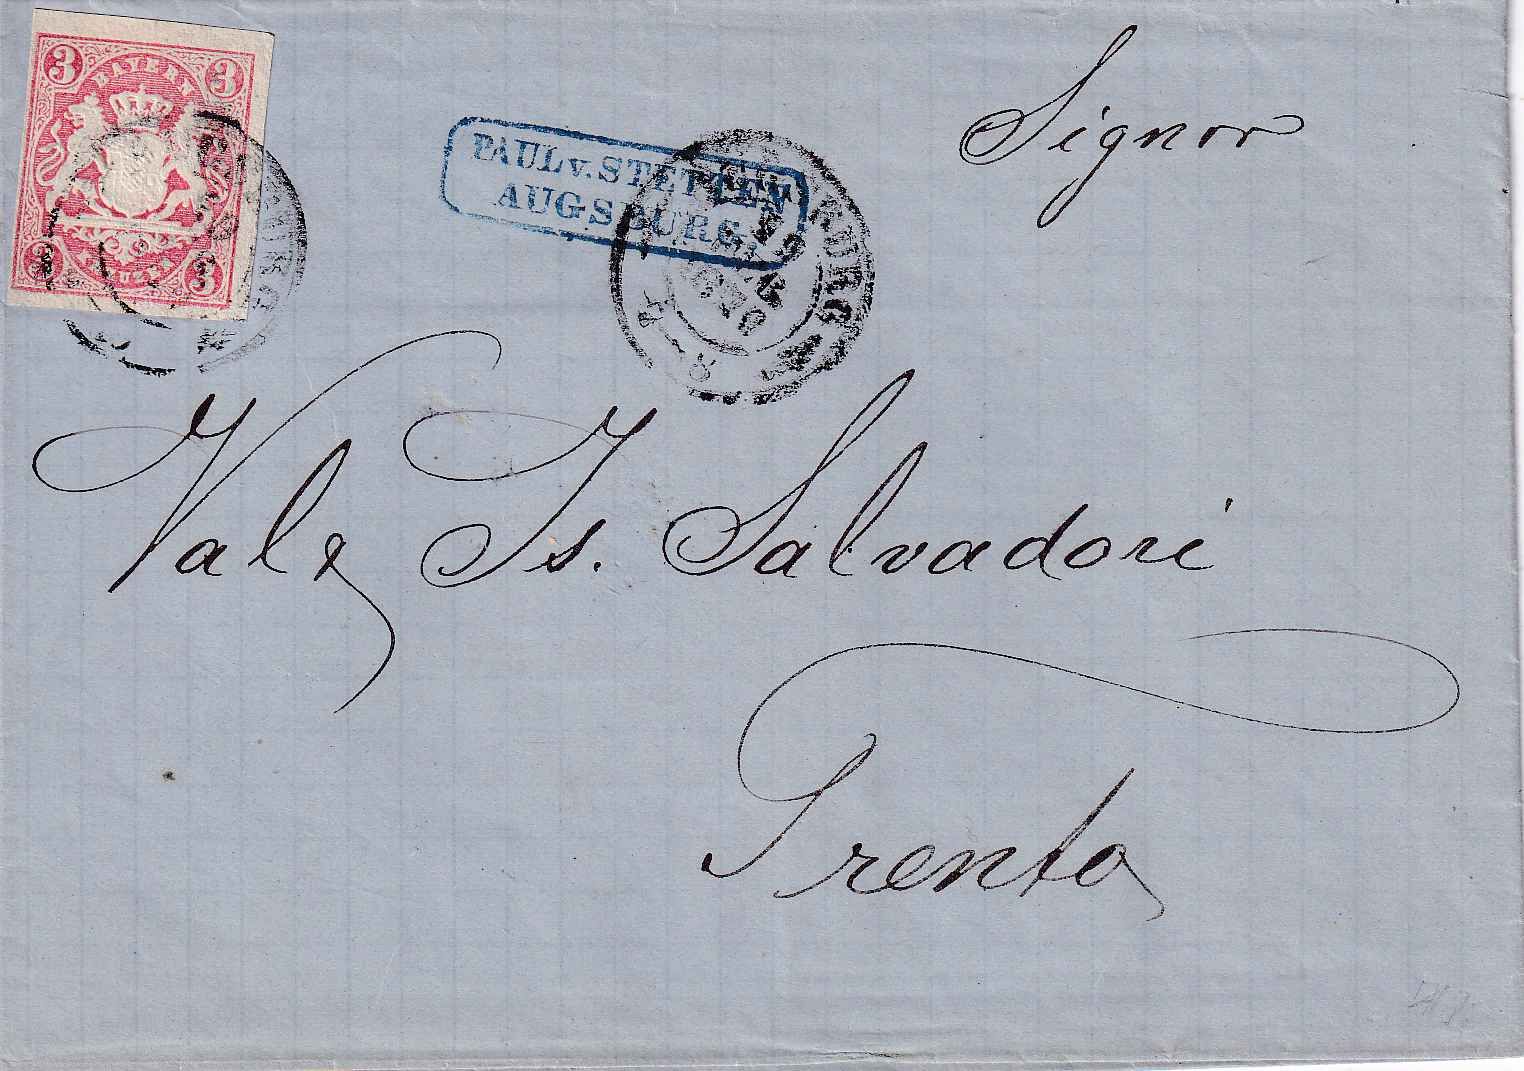 3 BAYERN 3
3 KREUZER 3
PAUL v. STETTEN
AUGSBURG.
Signor
Val& Is. Salvadori
Trento